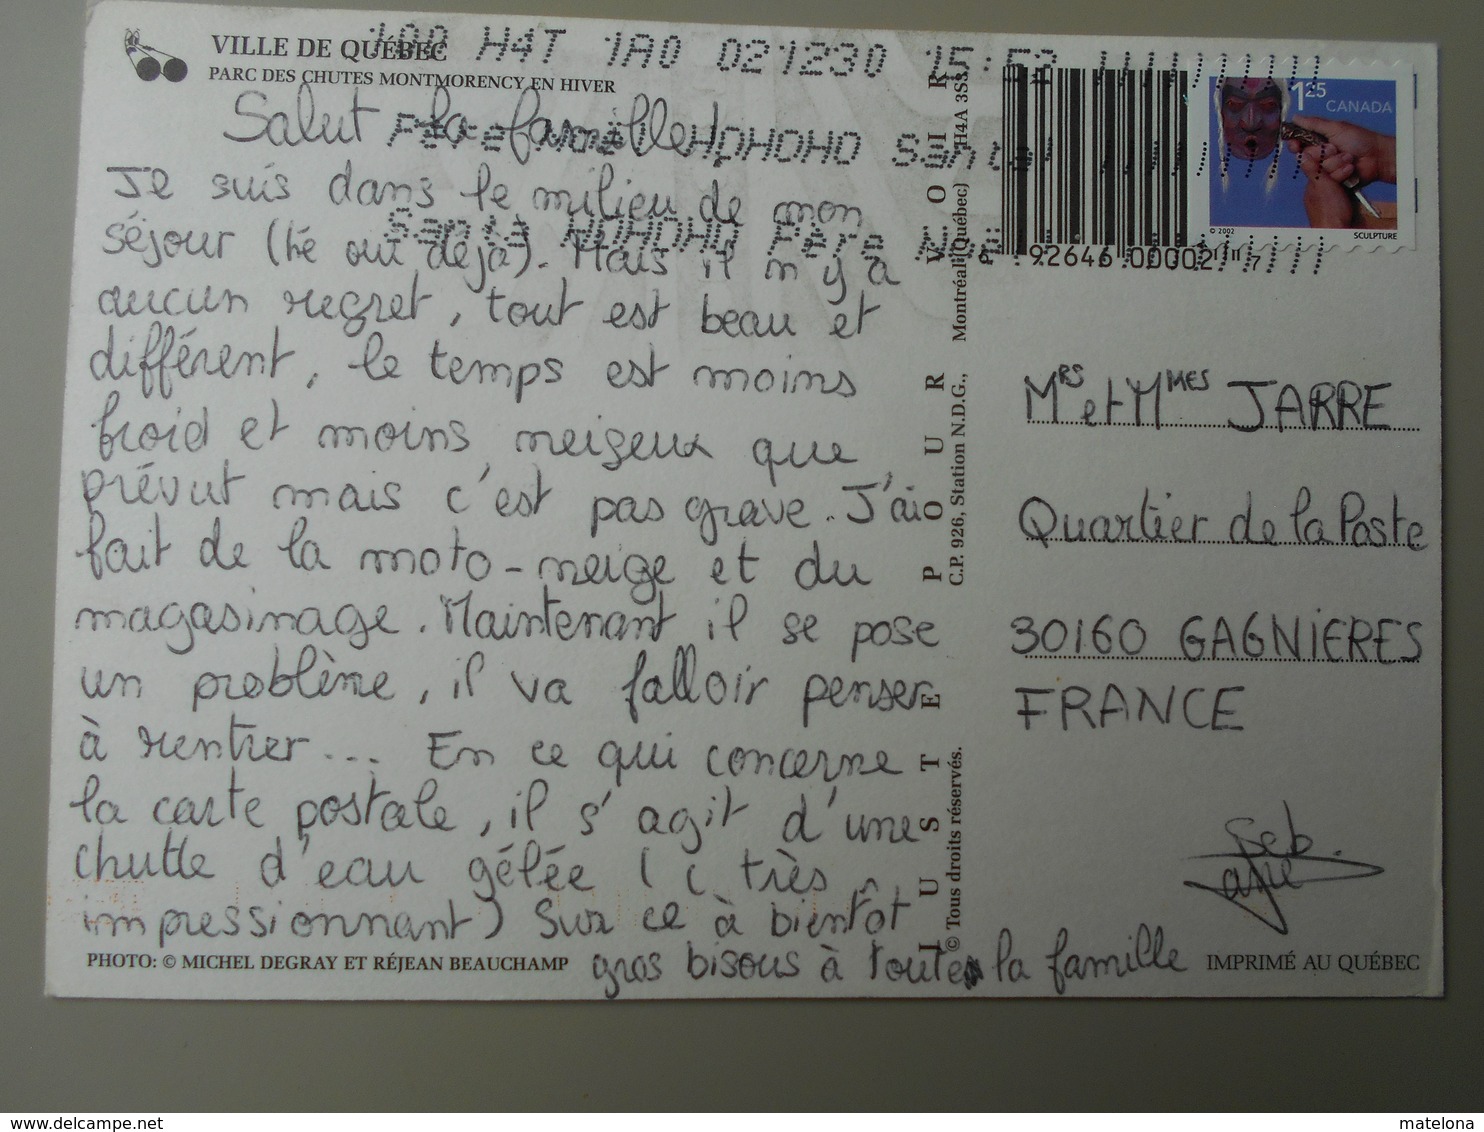 VILLE DE QUÉBEC
PARC DES CHUTES MONTMORENCY EN HIVER
H4T 1A0 021230 15:52
Père Noël HOHOHO Santa
Santa HOHOHO Père Noël
Salut la famille!
Je suis dans le milieu de mon
séjour (hé oui déjà). Mais il n'y a
aucun regret, tout est beau et
différent, le temps est moins
froid et moins neigeux que
prévut mais c'est pas grave. J'ai
fait de la moto-neige et du
magasinage. Maintenant il se pose
un problème, il va falloir penser
à rentrer... En ce qui concerne
la carte postale, il s'agit d'une
chutte d'eau gélée ! (très
impressionnant) Sur ce à bientôt
gros bisous à toute la famille
PHOTO: © MICHEL DEGRAY ET RÉJEAN BEAUCHAMP
JUSTE POUR VOIR
© Tous droits réservés. C.P. 926, Station N.D.G., Montréal (Québec) H4A 3S3
1.25 CANADA
© 2002 SCULPTURE
92646 00002 7
Mrs et Mmes JARRE
Quartier de la Poste
30160 GAGNIERES
FRANCE
Seb.
IMPRIMÉ AU QUÉBEC
https://www.delcampe.net
matelona